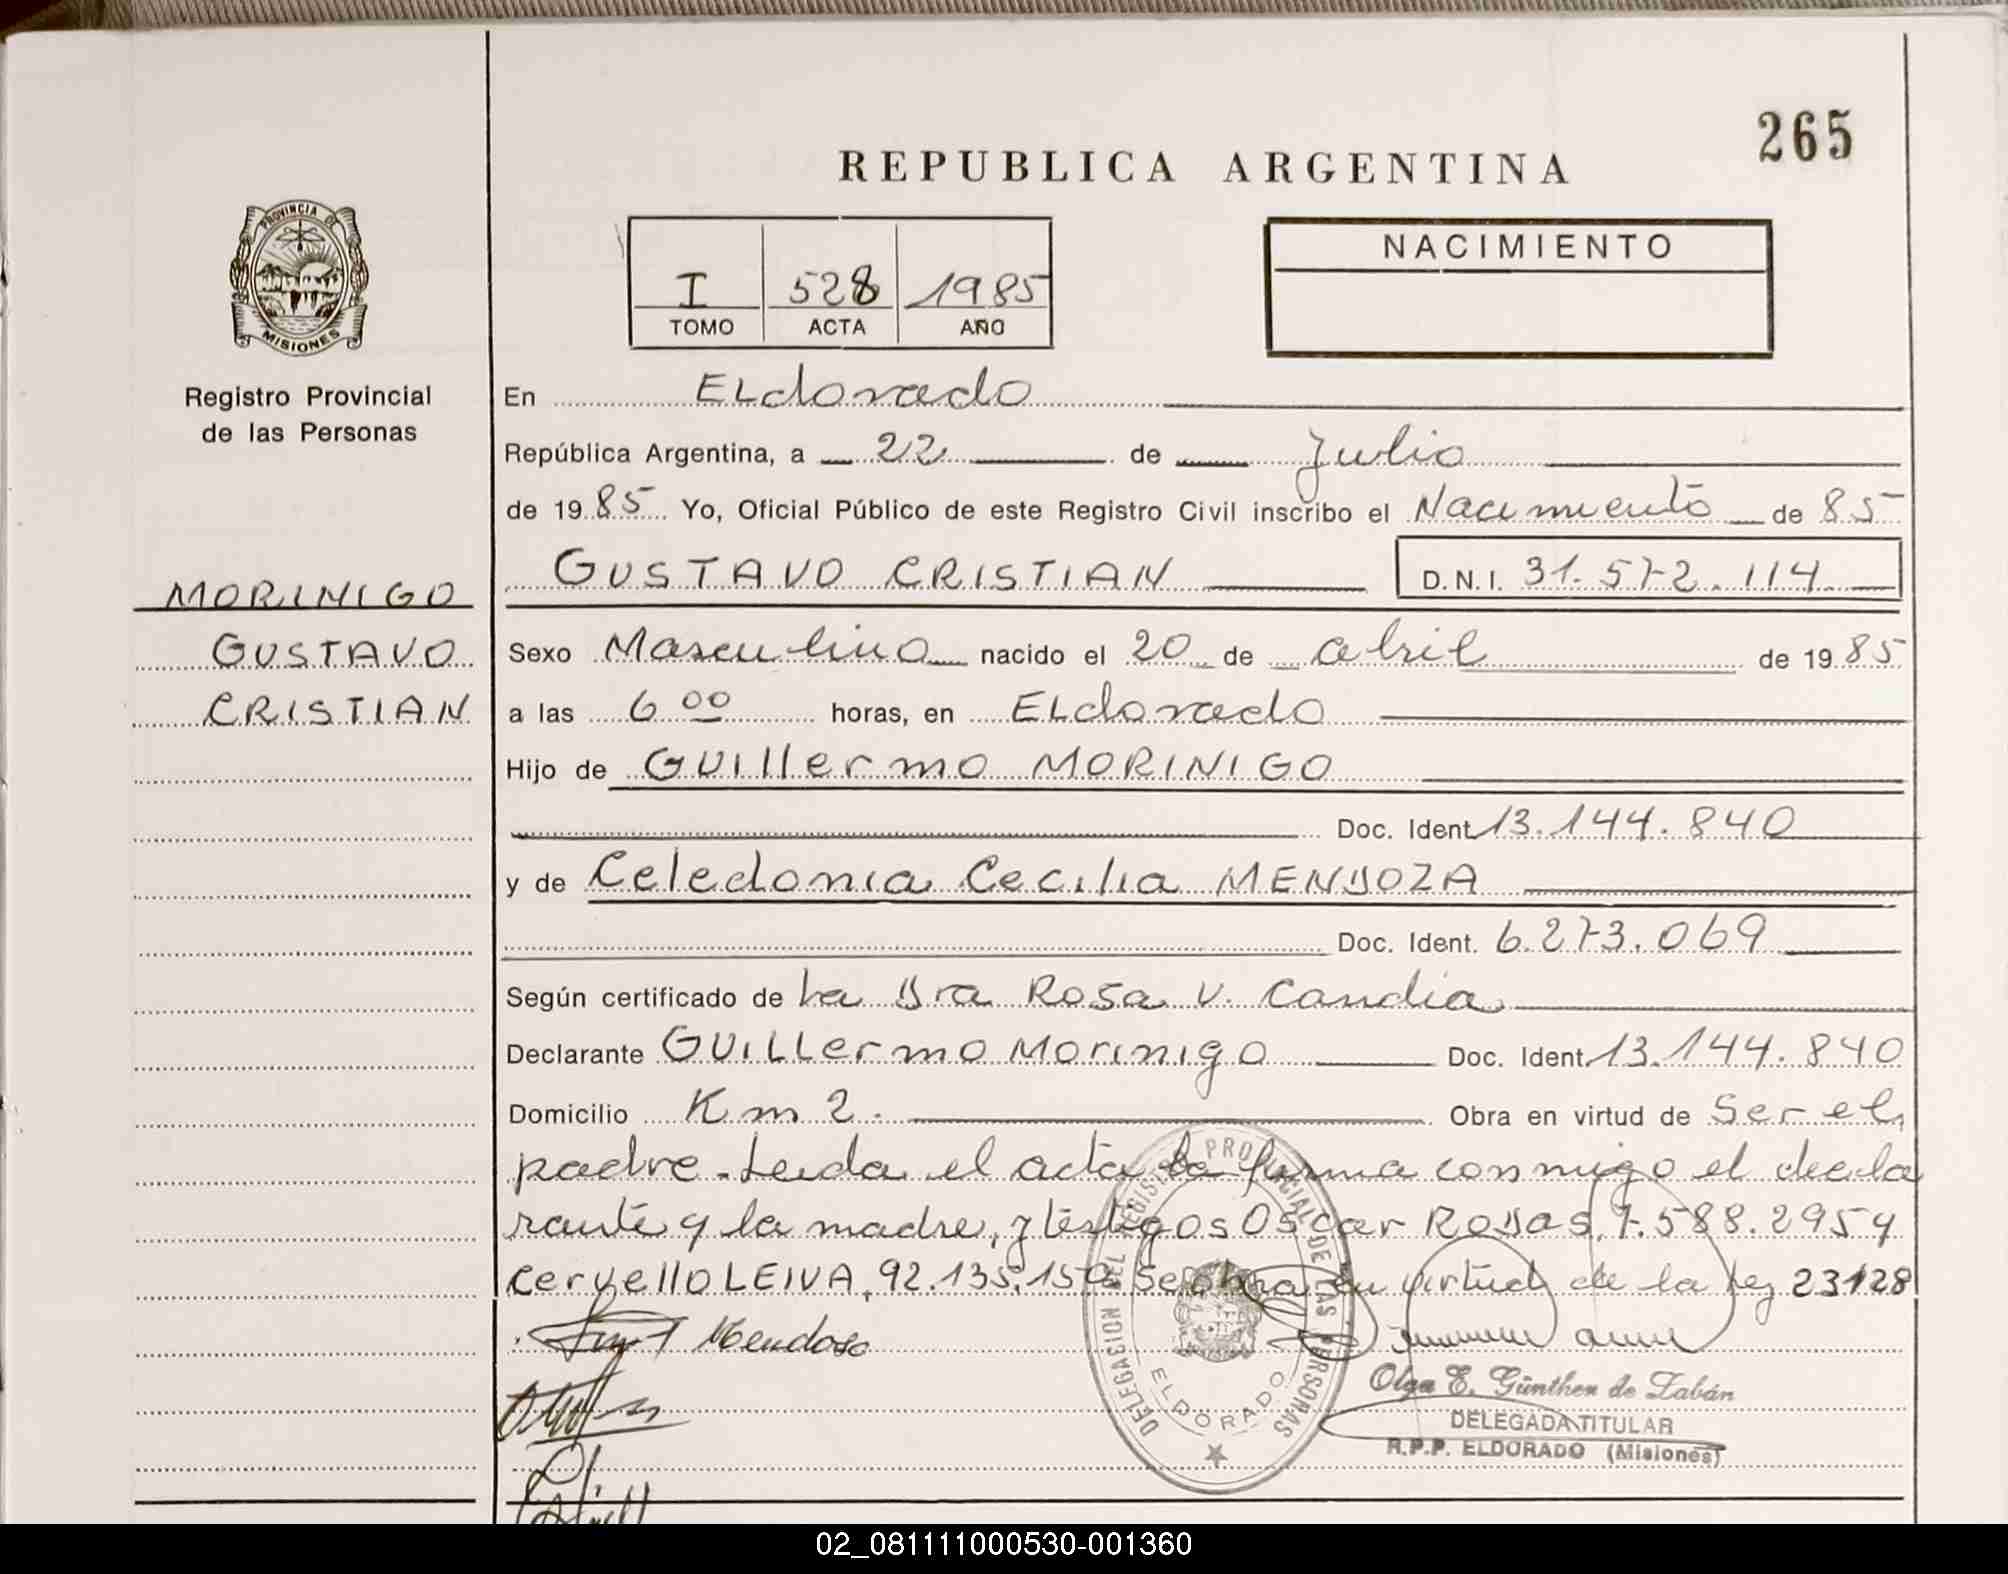 265
REPUBLICA ARGENTINA
PROVINCIA DE
MISIONES
Registro Provincial
de las Personas
I 528 1985
TOMO ACTA AÑO
NACIMIENTO
En ELdorado
República Argentina, a 22 de Julio
de 1985 Yo, Oficial Público de este Registro Civil inscribo el Nacimiento de 85
GUSTAVO CRISTIAN D.N.I. 31.572.114
MORINIGO
GUSTAVO
CRISTIAN
Sexo Masculino nacido el 20 de abril de 1985
a las 6 00 horas, en ELdorado
Hijo de GUillermo MORINIGO
Doc. Ident. 13.144.840
y de Celedonia Cecilia MENDOZA
Doc. Ident. 6.273.069
Según certificado de La Dra Rosa V. Candia
Declarante GUILLermo Morinigo Doc. Ident. 13.144.840
Domicilio Km 2. Obra en virtud de Ser el
padre. Leida el acta la firma conmigo el decla
rante y la madre, y testigos Oscar RODAS, 7.588.295 y
LEIVA, 92.135.15 Se obra en virtud de la Ley 23128
Mendoso
DELEGACION DEL REGISTRO PROVINCIAL DE LAS PERSONAS
ELDORADO
Olga E. Günther de Zabán
DELEGADA TITULAR
R.P.P. ELDORADO (Misiones)
02_081111000530-001360